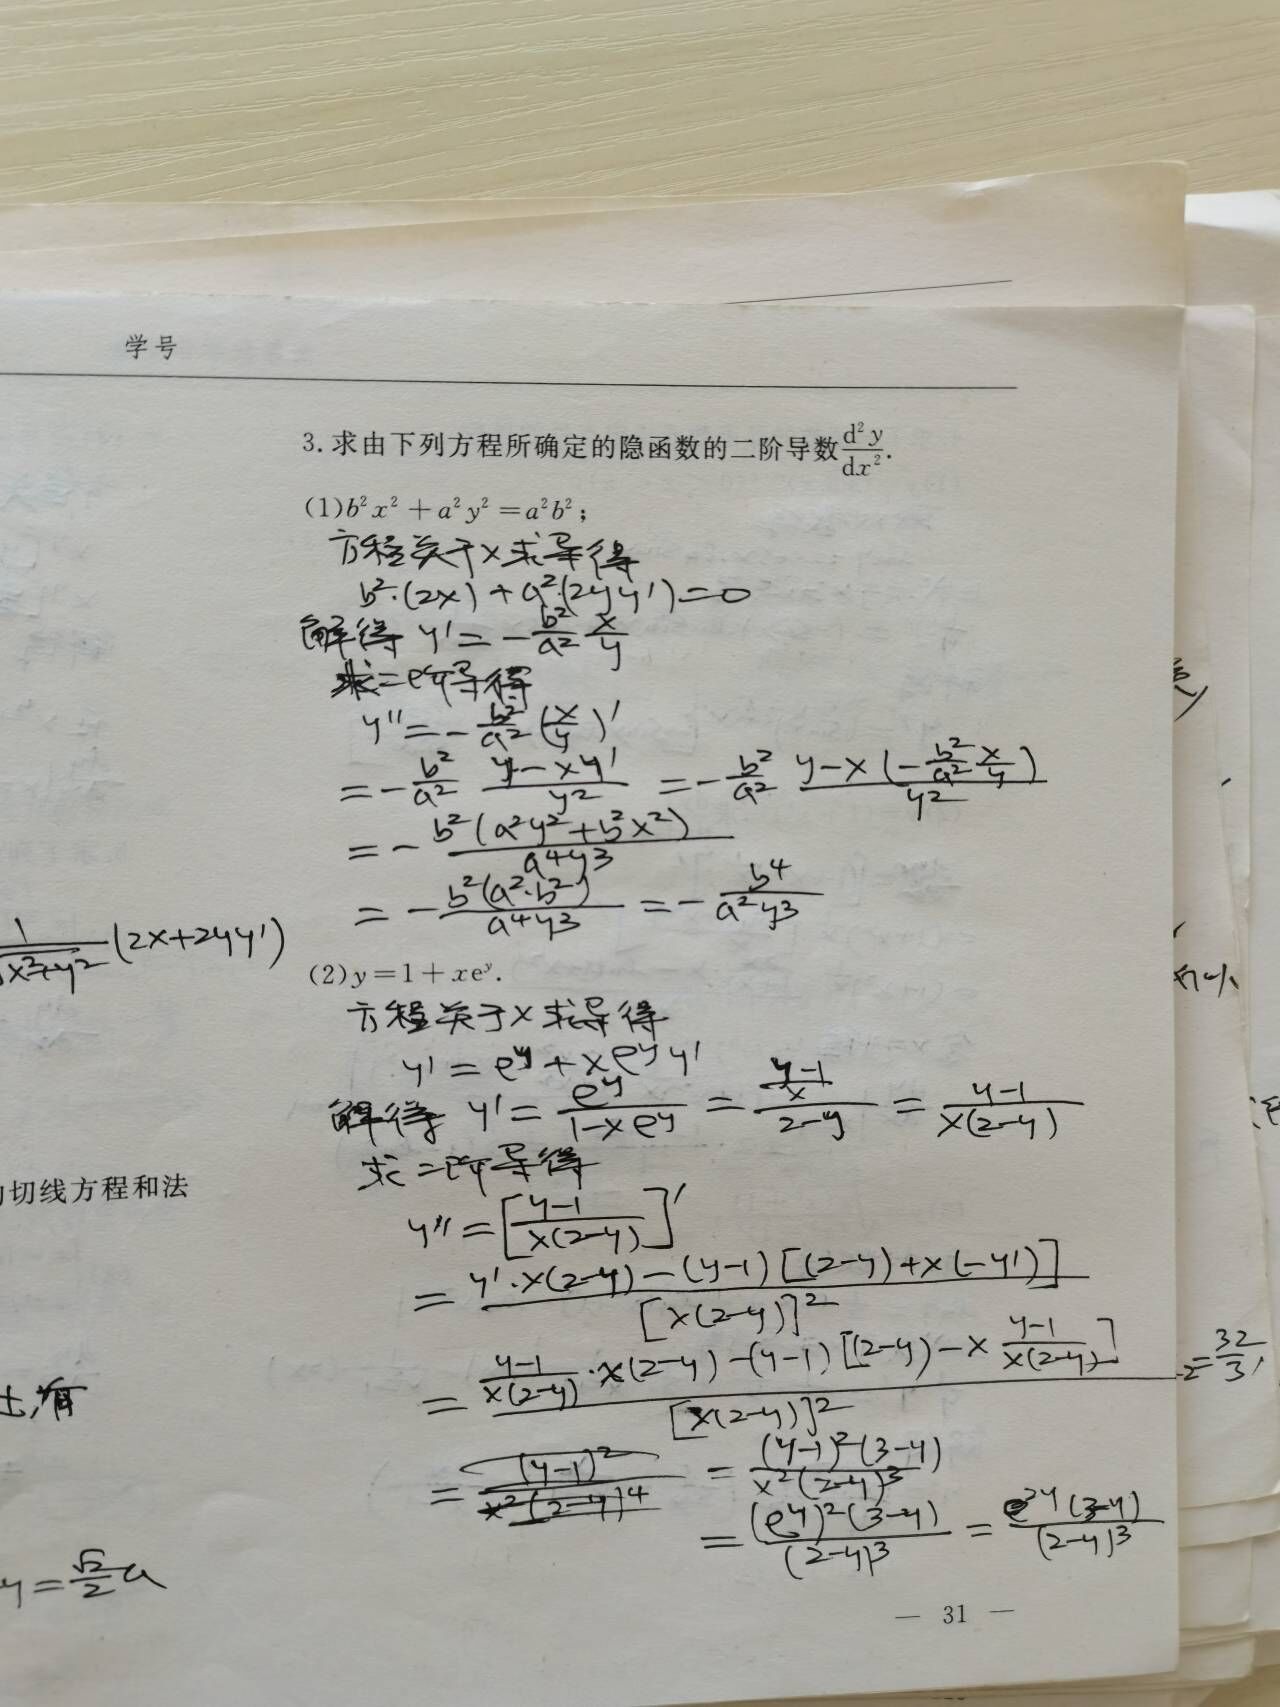 学号
3.求由下列方程所确定的隐函数的二阶导数d²y/dx².
(1)b²x²+a²y²=a²b²;
方程关于x求导得
b²·(2x)+a²·(2yy')=0
解得 y'=-b²/a² x/y
求二阶导得
y''=-b²/a² (x/y)'
=-b²/a² (y-xy')/y² =-b²/a² (y-x(-b²/a² x/y))/y²
=-b²(a²y²+b²x²)/(a⁴y³)
=-b²(a²·b²)/(a⁴y³) =-b⁴/(a²y³)
1/√(x²+y²) (2x+2yy')
(2)y=1+xeʸ.
方程关于x求导得
y'=eʸ+xeʸy'
解得 y'=eʸ/(1-xeʸ) = ((y-1)/x)/(2-y) = (y-1)/(x(2-y))
求二阶导得
切线方程和法
y''=[(y-1)/(x(2-y))]'
=(y'·x(2-y)-(y-1)[(2-y)+x(-y')])/[x(2-y)]²
=((y-1)/(x(2-y))·x(2-y)-(y-1)[(2-y)-x (y-1)/(x(2-y))])/[x(2-y)]²
=32/3,
=(y-1)²/(x²(2-y)⁴) =(y-1)²(3-y)/(x²(2-y)³)
=(eʸ)²(3-y)/(2-y)³ =e²ʸ(3-y)/(2-y)³
y=√2/2 a
— 31 —